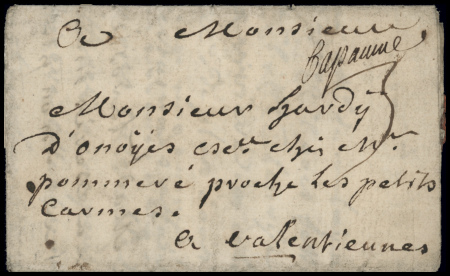 A Monsieur
Bapaume
Monsieur hardÿ
D'onoÿes chéz Mr
pommeré proche les petits
Carmes.
a valentiennes